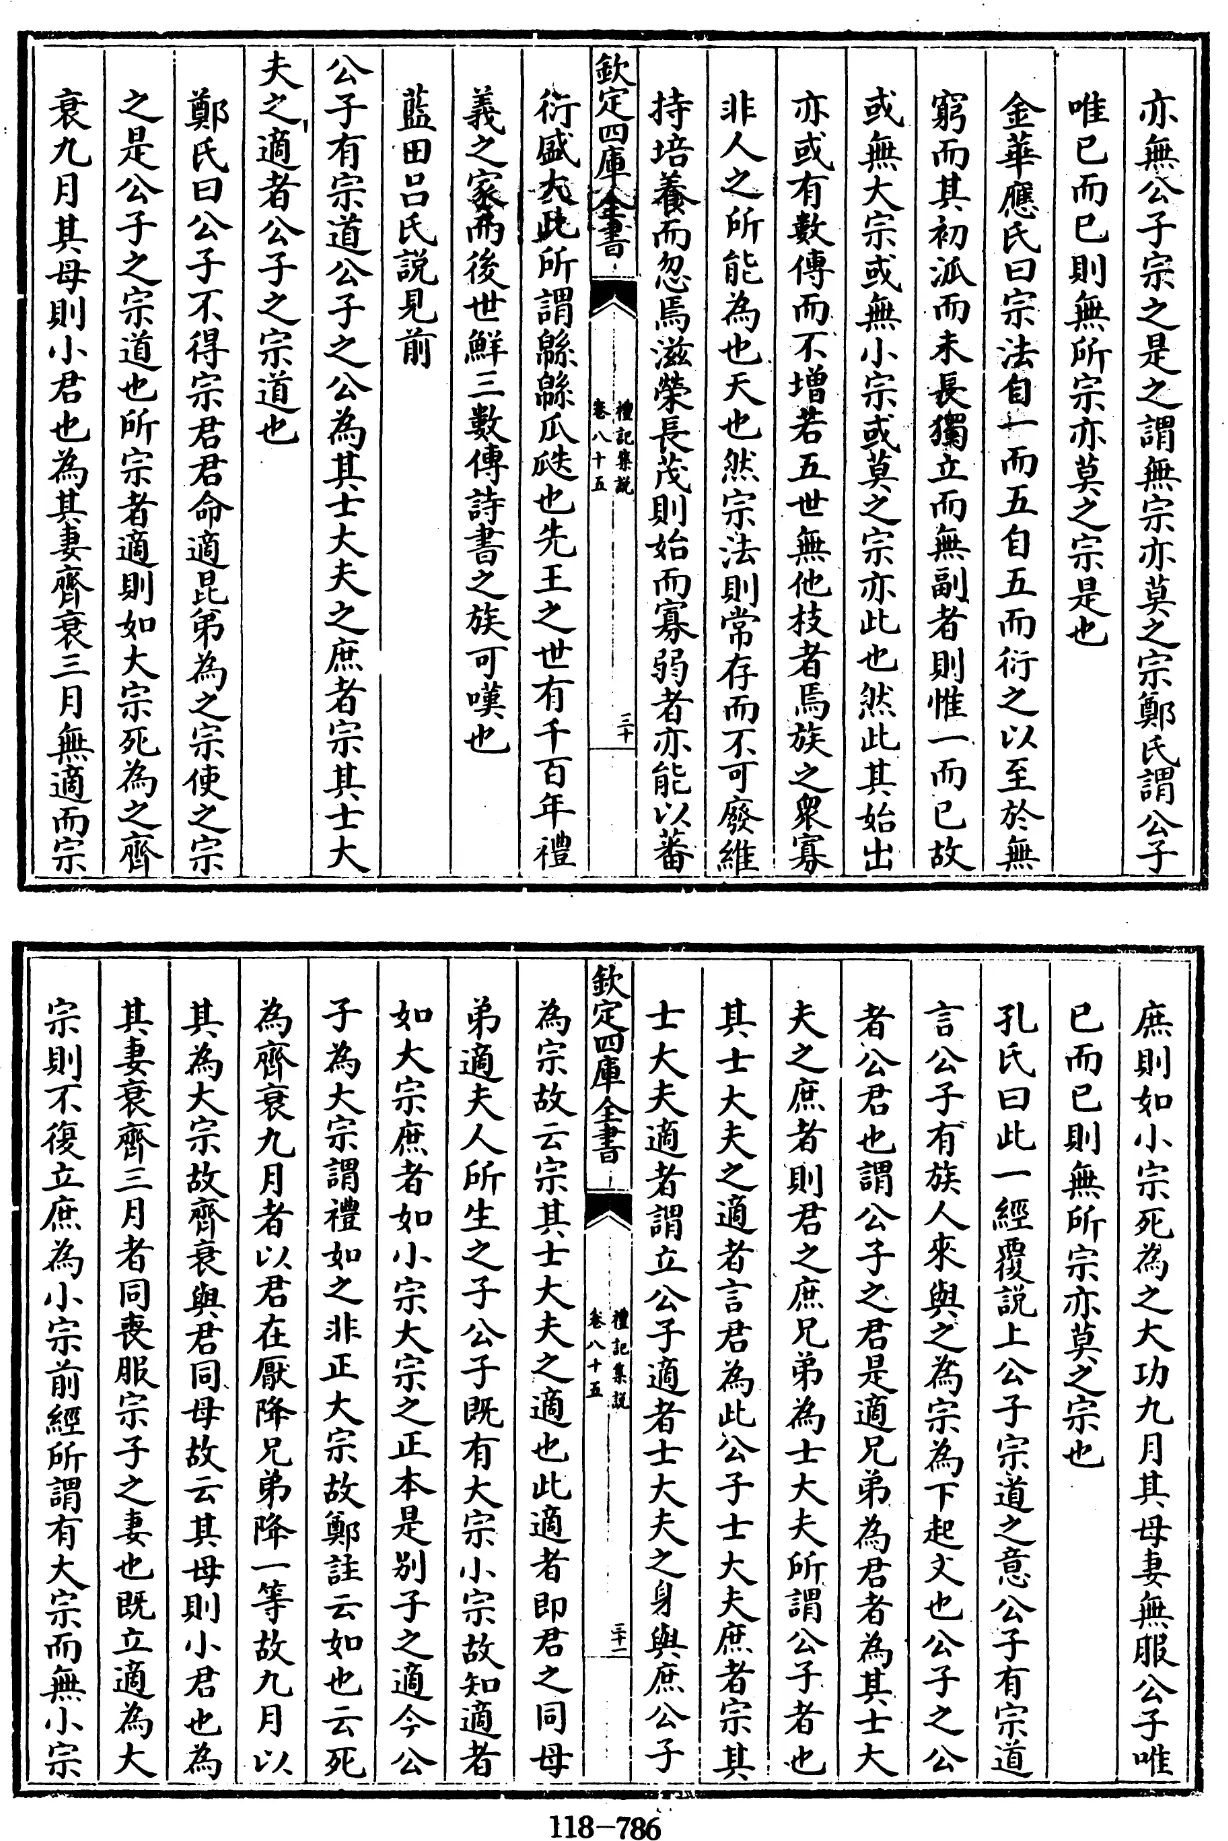 亦無公子宗之是之謂無宗亦莫之宗鄭氏謂公子
唯已而已則無所宗亦莫之宗是也
金華應氏曰宗法自一而五自五而衍之以至於無
窮而其初泒而未長獨立而無副者則惟一而已故
或無大宗或無小宗或莫之宗亦此也然此其始出
亦或有數傳而不增若五世無他枝者焉族之衆寡
非人之所能為也天也然宗法則常存而不可廢維
持培養而忽焉滋榮長茂則始而寡弱者亦能以蕃
欽定四庫全書
禮記集説
卷八十五
三十
衍盛大此所謂緜緜瓜瓞也先王之世有千百年禮
義之家而後世鮮三數傳詩書之族可嘆也
藍田呂氏説見前
公子有宗道公子之公為其士大夫之庶者宗其士大
夫之適者公子之宗道也
鄭氏曰公子不得宗君君命適昆弟為之宗使之宗
之是公子之宗道也所宗者適則如大宗死為之齊
衰九月其母則小君也為其妻齊衰三月無適而宗
庶則如小宗死為之大功九月其母妻無服公子唯
已而已則無所宗亦莫之宗也
孔氏曰此一經覆説上公子宗道之意公子有宗道
言公子有族人來與之為宗為下起文也公子之公
者公君也謂公子之君是適兄弟為君者為其士大
夫之庶者則君之庶兄弟為士大夫所謂公子者也
其士大夫之適者言君為此公子士大夫庶者宗其
士大夫適者謂立公子適者士大夫之身與庶公子
欽定四庫全書
禮記集説
卷八十五
三十一
為宗故云宗其士大夫之適也此適者即君之同母
弟適夫人所生之子公子既有大宗小宗故知適者
如大宗庶者如小宗大宗之正本是别子之適今公
子為大宗謂禮如之非正大宗故鄭註云如也云死
為齊衰九月者以君在厭降兄弟降一等故九月以
其為大宗故齊衰與君同母故云其母則小君也為
其妻衰齊三月者同喪服宗子之妻也既立適為大
宗則不復立庶為小宗前經所謂有大宗而無小宗
118-786